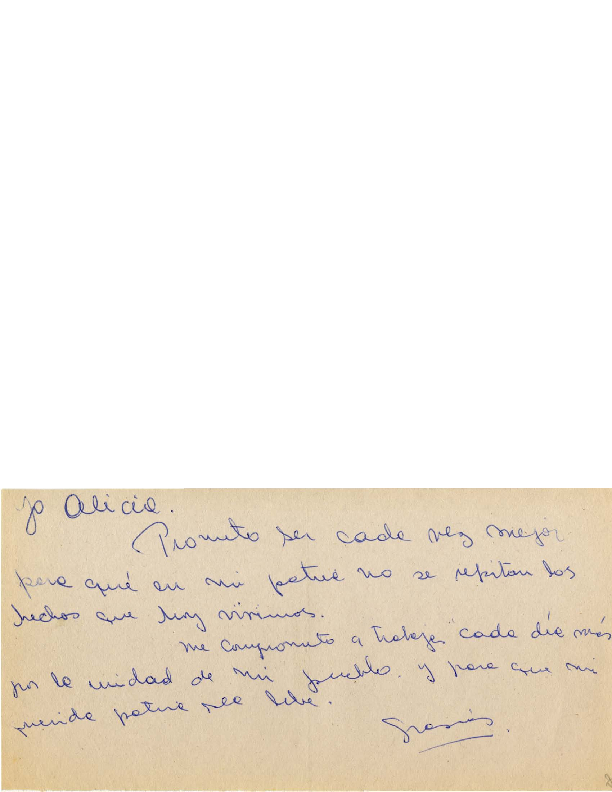 yo Alicia.
Prometo ser cada vez mejor
para qué en mi patria no se repitan los
hechos que hoy vivimos.
me comprometo a trabajar cada día más
por la unidad de mi pueblo. y para que mi
querida patria sea
Grasias.